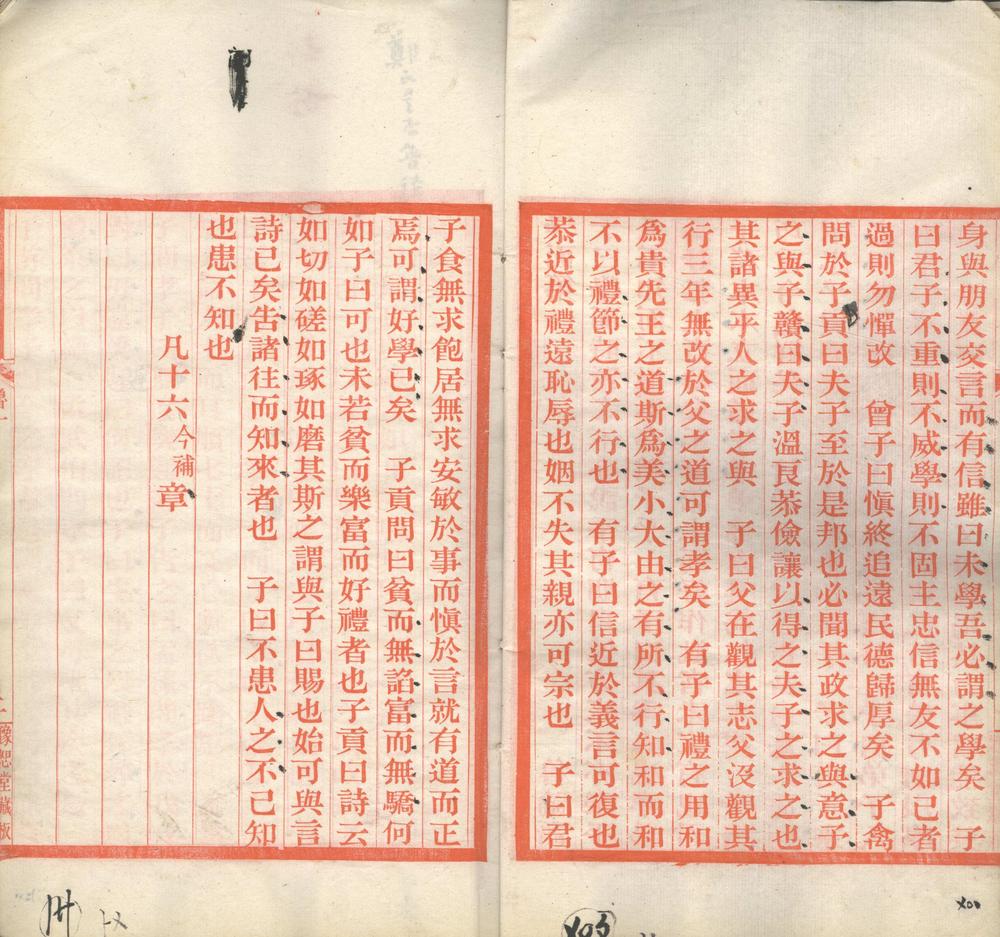 身與朋友交言而有信雖曰未學吾必謂之學矣　子
曰君子不重則不威學則不固主忠信無友不如己者
過則勿憚改　曾子曰愼終追遠民德歸厚矣　子禽
問於子貢曰夫子至於是邦也必聞其政求之與意予
之與子贛曰夫子溫良恭儉讓以得之夫子之求之也
其諸異乎人之求之與　子曰父在觀其志父沒觀其
行三年無改於父之道可謂孝矣　有子曰禮之用和
爲貴先王之道斯爲美小大由之有所不行知和而和
不以禮節之亦不行也　有子曰信近於義言可復也
恭近於禮遠恥辱也姻不失其親亦可宗也　子曰君
子食無求飽居無求安敏於事而愼於言就有道而正
焉可謂好學已矣　子貢問曰貧而無諂富而無驕何
如子曰可也未若貧而樂富而好禮者也子貢曰詩云
如切如磋如琢如磨其斯之謂與子曰賜也始可與言
詩已矣告諸往而知來者也　子曰不患人之不己知
也患不知也
凡十六今補章
豫恕堂藏板